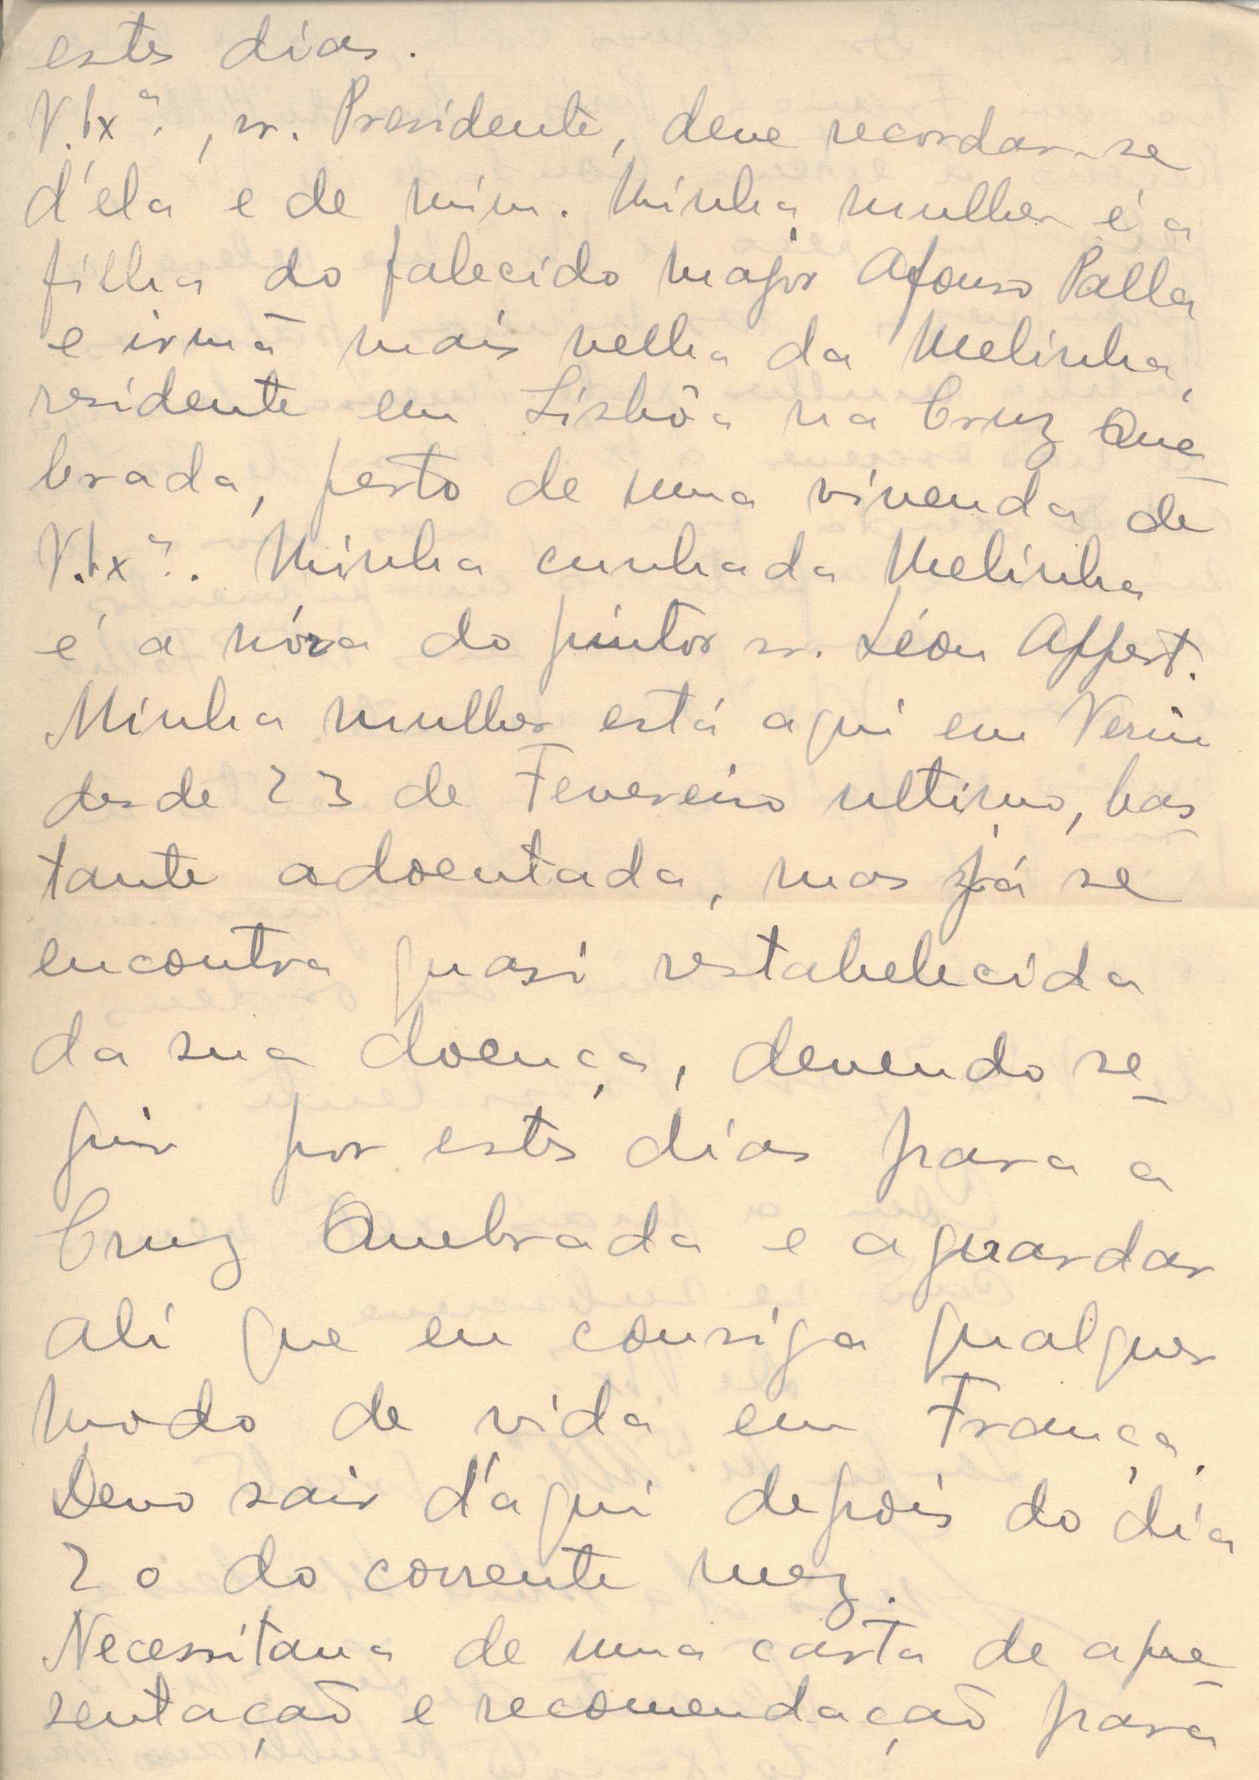 estes dias.
V. Exª., sr. Presidente, deve recordar-se
d'ela e de mim. Minha mulher é a
filha do falecido major Afonso Palla
e irmã mais velha da Melinha,
residente em Lisbôa na Cruz Que-
brada, perto de uma vivenda de
V. Exª.. Minha cunhada Melinha
é a nóra do pintor sr. Léon Appert.
Minha mulher está aqui em Verin
desde 23 de Fevereiro ultimo, bas-
tante adoentada, mas já se
encontra quasi restabelecida
da sua doença, devendo se-
guir por estes dias para a
Cruz Quebrada e aguardar
ali que eu consiga qualquer
modo de vida em França.
Devo sair d'aqui depois do dia
20 do corrente mez.
Necessitava de uma carta de apre-
sentação e recomendação para